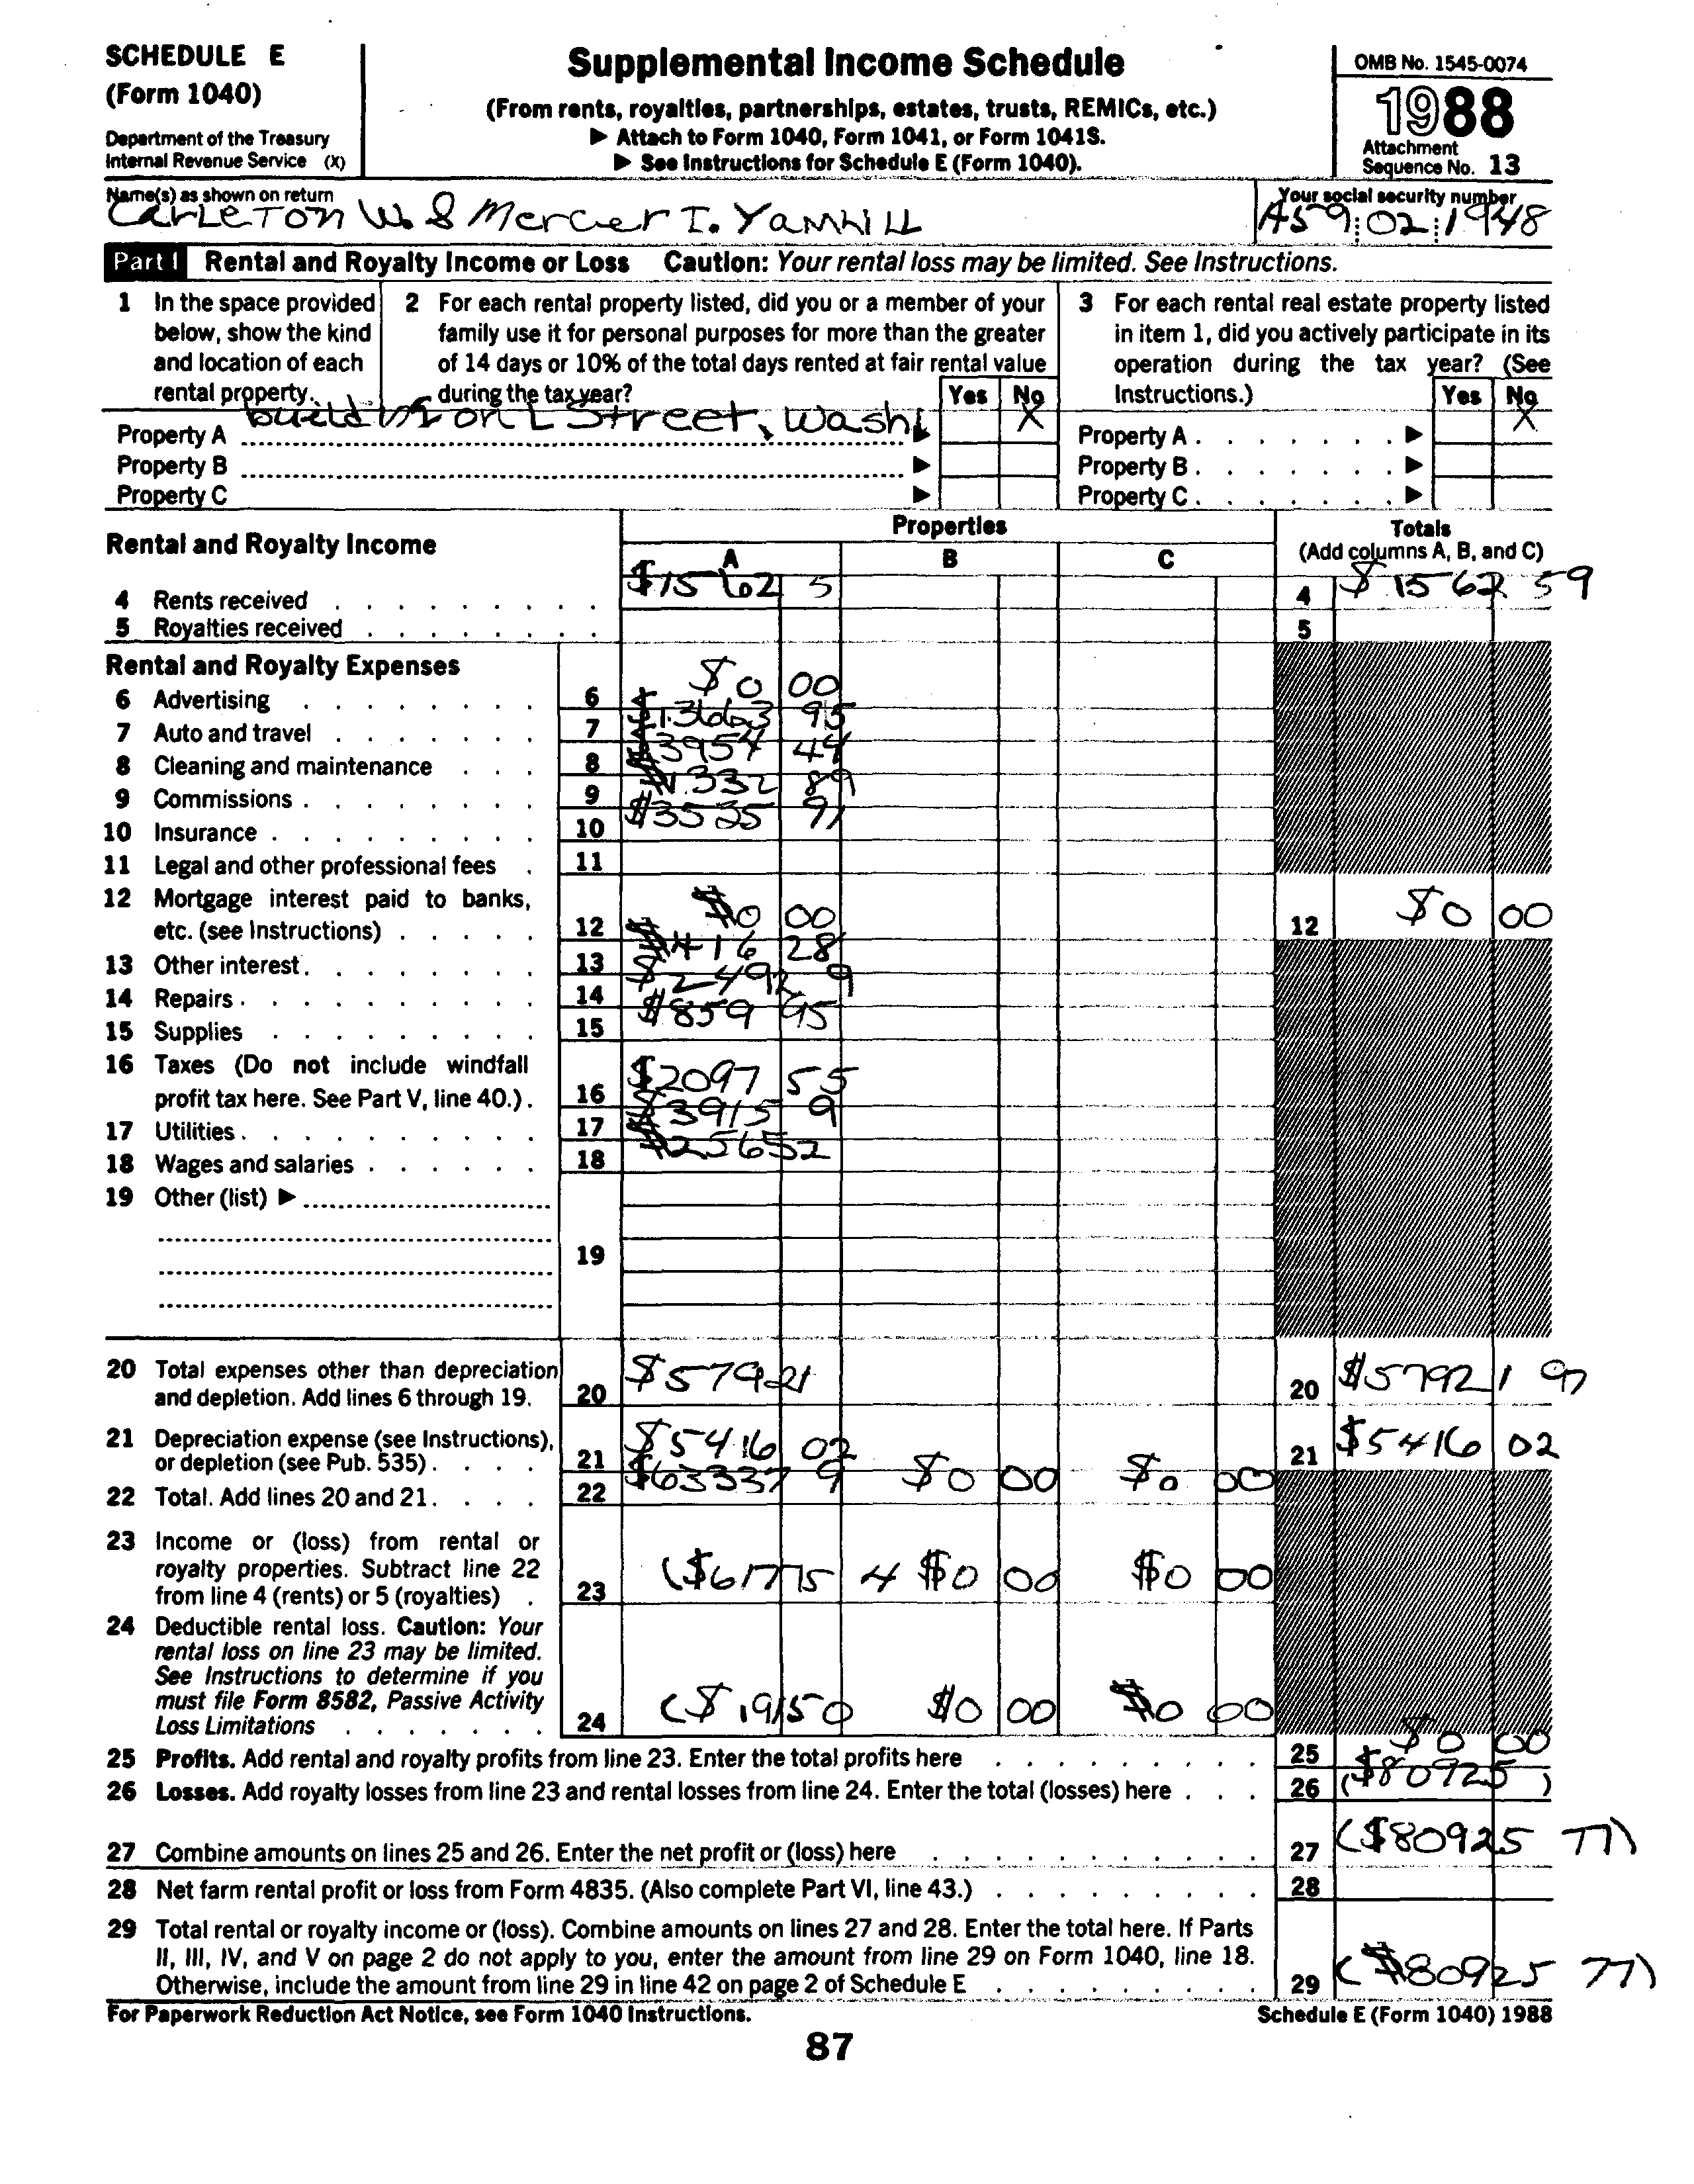 SCHEDULE E
(Form 1040)
Department of the Treasury
Internal Revenue Service (X)
Supplemental Income Schedule
(From rents, royalties, partnerships, estates, trusts, REMICs, etc.)
▶ Attach to Form 1040, Form 1041, or Form 1041S.
▶ See Instructions for Schedule E (Form 1040).
OMB No. 1545-0074
1988
Attachment
Sequence No. 13
Name(s) as shown on return
Carleton W. & Mercier I. Yamhill
Your social security number
A59:02:1948
Part I Rental and Royalty Income or Loss Caution: Your rental loss may be limited. See Instructions.
1 In the space provided below, show the kind and location of each rental property.
2 For each rental property listed, did you or a member of your family use it for personal purposes for more than the greater of 14 days or 10% of the total days rented at fair rental value during the tax year?
Yes No
3 For each rental real estate property listed in item 1, did you actively participate in its operation during the tax year? (See Instructions.)
Yes No
Property A building on L Street, Washi ▶ X
Property B ▶
Property C ▶
Property A ▶ X
Property B ▶
Property C ▶
Rental and Royalty Income
Properties
A B C
Totals
(Add columns A, B, and C)
4 Rents received $1562 5 4 $1562 59
5 Royalties received 5
Rental and Royalty Expenses
6 Advertising 6 $0 00
7 Auto and travel 7 $13663 95
8 Cleaning and maintenance 8 $3954 44
9 Commissions 9 $1332 89
10 Insurance 10 $3535 91
11 Legal and other professional fees 11
12 Mortgage interest paid to banks, etc. (see Instructions) 12 $0 00 12 $0 00
13 Other interest 13 $416 28
14 Repairs 14 $2492 9
15 Supplies 15 $859 95
16 Taxes (Do not include windfall profit tax here. See Part V, line 40.) 16 $2097 55
17 Utilities 17 $3915 9
18 Wages and salaries 18 $25652
19 Other (list) ▶ 19
20 Total expenses other than depreciation and depletion. Add lines 6 through 19. 20 $57921 20 $57921 97
21 Depreciation expense (see Instructions), or depletion (see Pub. 535) 21 $5416 02 21 $5416 02
22 Total. Add lines 20 and 21 22 $63337 9 $0 00 $0 00
23 Income or (loss) from rental or royalty properties. Subtract line 22 from line 4 (rents) or 5 (royalties) 23 ($61775 4 $0 00 $0 00
24 Deductible rental loss. Caution: Your rental loss on line 23 may be limited. See Instructions to determine if you must file Form 8582, Passive Activity Loss Limitations 24 ($19150 $0 00 $0 00
25 Profits. Add rental and royalty profits from line 23. Enter the total profits here 25 $0 00
26 Losses. Add royalty losses from line 23 and rental losses from line 24. Enter the total (losses) here 26 ($80925 )
27 Combine amounts on lines 25 and 26. Enter the net profit or (loss) here 27 ($80925 77)
28 Net farm rental profit or loss from Form 4835. (Also complete Part VI, line 43.) 28
29 Total rental or royalty income or (loss). Combine amounts on lines 27 and 28. Enter the total here. If Parts II, III, IV, and V on page 2 do not apply to you, enter the amount from line 29 on Form 1040, line 18. Otherwise, include the amount from line 29 in line 42 on page 2 of Schedule E 29 ($80925 77)
For Paperwork Reduction Act Notice, see Form 1040 Instructions.
Schedule E (Form 1040) 1988
87